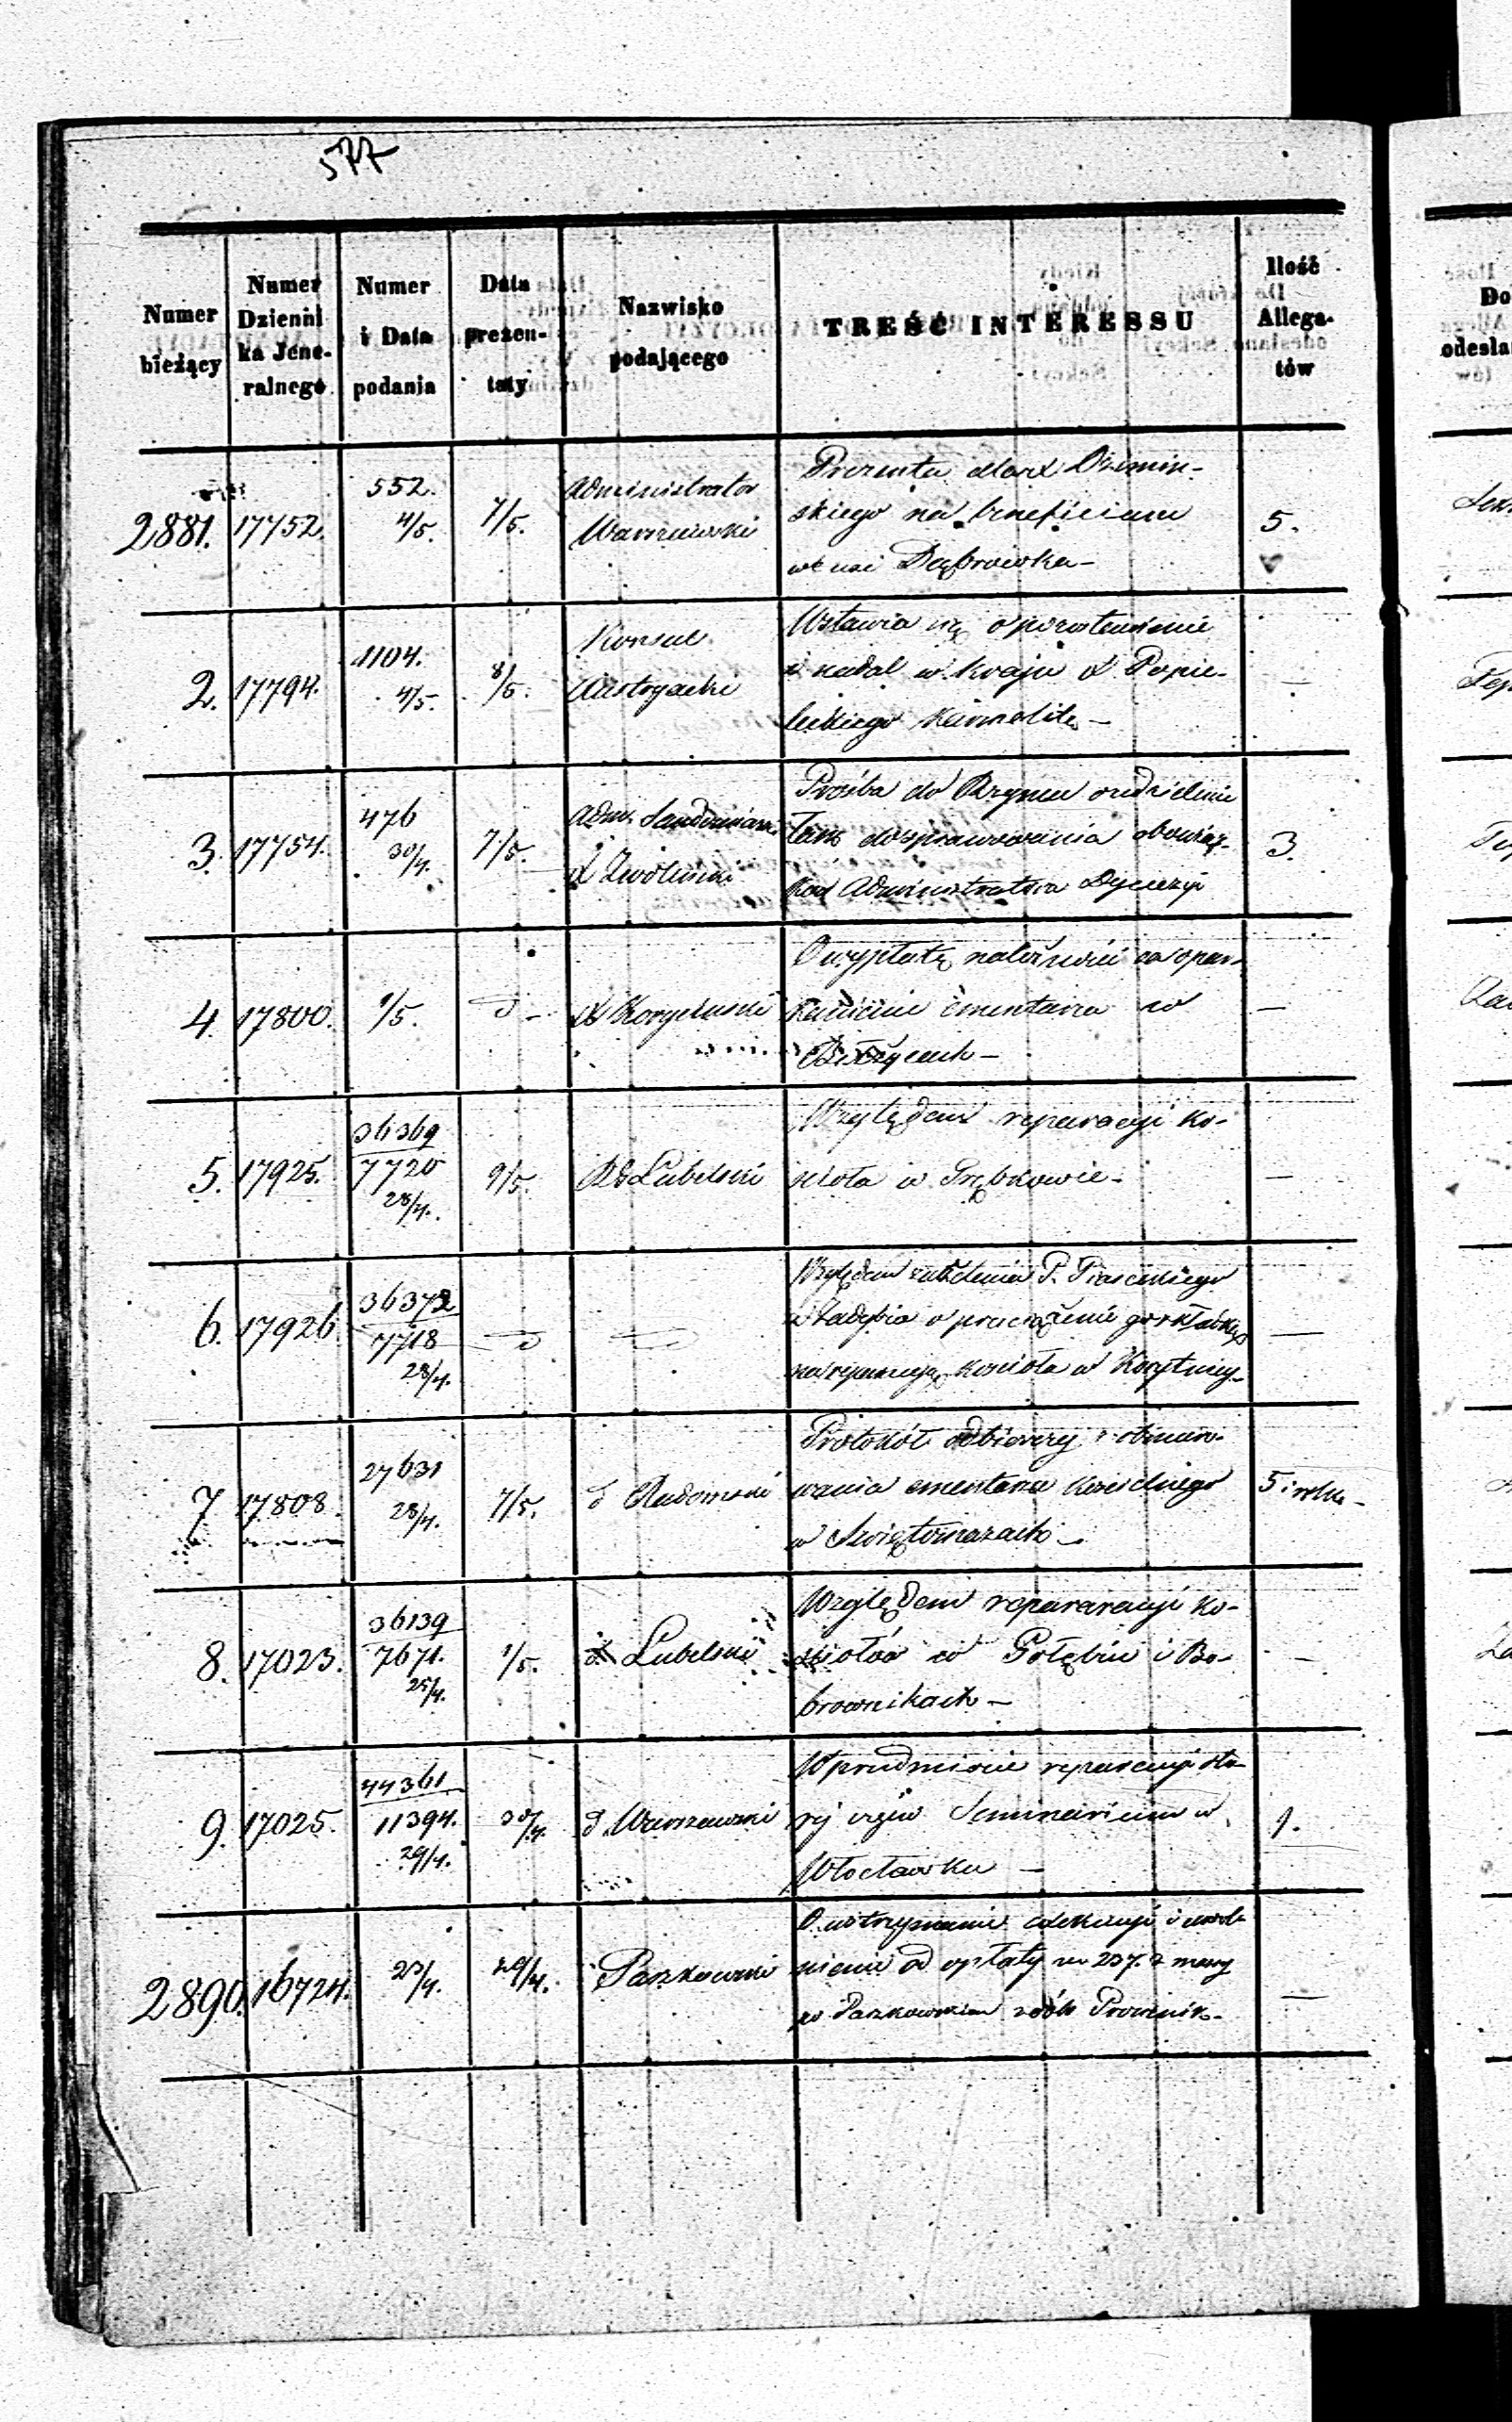 577
Numer bieżący
Numer Dzienni ka Jene- ralnego
Numer i Data podania
Data prezen- taty
Nazwisko podającego
TREŚĆ INTERESSU
Ilość Allega- tów
2881. 17752. 552. 4/5. 7/5. Administrator Warszawski
Prezenta dla X
skiego na beneficium
we wsi Dąbrowka –
5.
2. 17794. 1104. 4/5. 8/5. Konsul Austryacki
Wstawia się o pozostawienie
nadal w kraju X Popie-
leckiego Karmelitę –
–
3. 17754. 476 30/4. 7/5. Adm. Sandomiers. X Zwoliński
Prośba do Rzymu o udzielenie
do sprawowania obowiąz-
ków Administratora Dyecezyi
3.
4. 17800. 1/5. d – X
O wypłatę należności za opar-
kanienie cmentarza w
–
5. 17925. 36369 7720 28/4. 9/5. RG Lubelski
Względem reparacyi ko-
scioła w Trębkowie –
–
6. 17926. 36372 7718 28/4. d d
Względem zażalenia P. Piaseckiego
z Zadybia o przeciążenie go składką
na reparacyą kościoła w Korytnicy –
–
7 17808. 27631 28/4. 7/5. d Radomski
Protokół odbiorczy obmuro-
wania cmentarza kościelnego
w Świętomarzach –
5 i rolka –
8. 17023. 36139 7671. 25/4. 1/5. d. Lubelski
Względem repararacyi ko-
sciołów w Gołębiu i Bo-
brownikach –
–
9. 17025. 44361 11394. 29/4. 30/4. d. Warszawski
W przedmiocie reparacyi sta-
rej części Seminarium w
Włocławku –
1.
2890. 16724. 23/4. 29/4. Paszkowski
O wstrzymanie exekucyi i uwol-
nienie od opłaty rs 237. z massy
po Paszkowskim
–